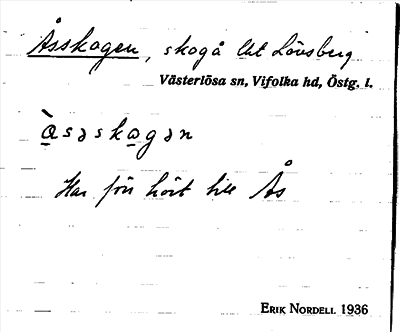 Åsskogen, skogå lht Lövsberg
Västerlösa sn, Vifolka hd, Östg. l.
à̲səsko̲gən
Har förr hört till Ås
ERIK NORDELL 1936